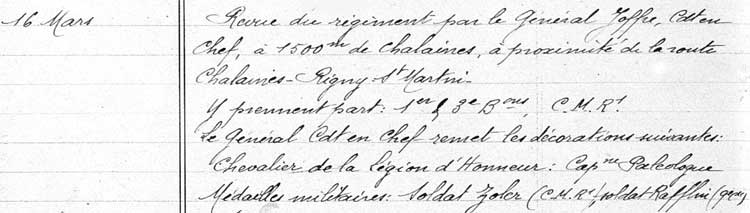 16 Mars Revue du régiment par le Général Joffre, Cdt en
Chef, à 1500m de Chalaines, à proximité de la route
Chalaines-Rigny-St Martin.
Y prennent part: 1er & 3e Bons, C.M.Rt
Le Général Cdt en Chef remet les décorations suivantes:
Chevalier de la Légion d'Honneur: Capne Paléologue
Médailles militaires: Soldat Zoler (C.M.Rt) soldat Rafflin